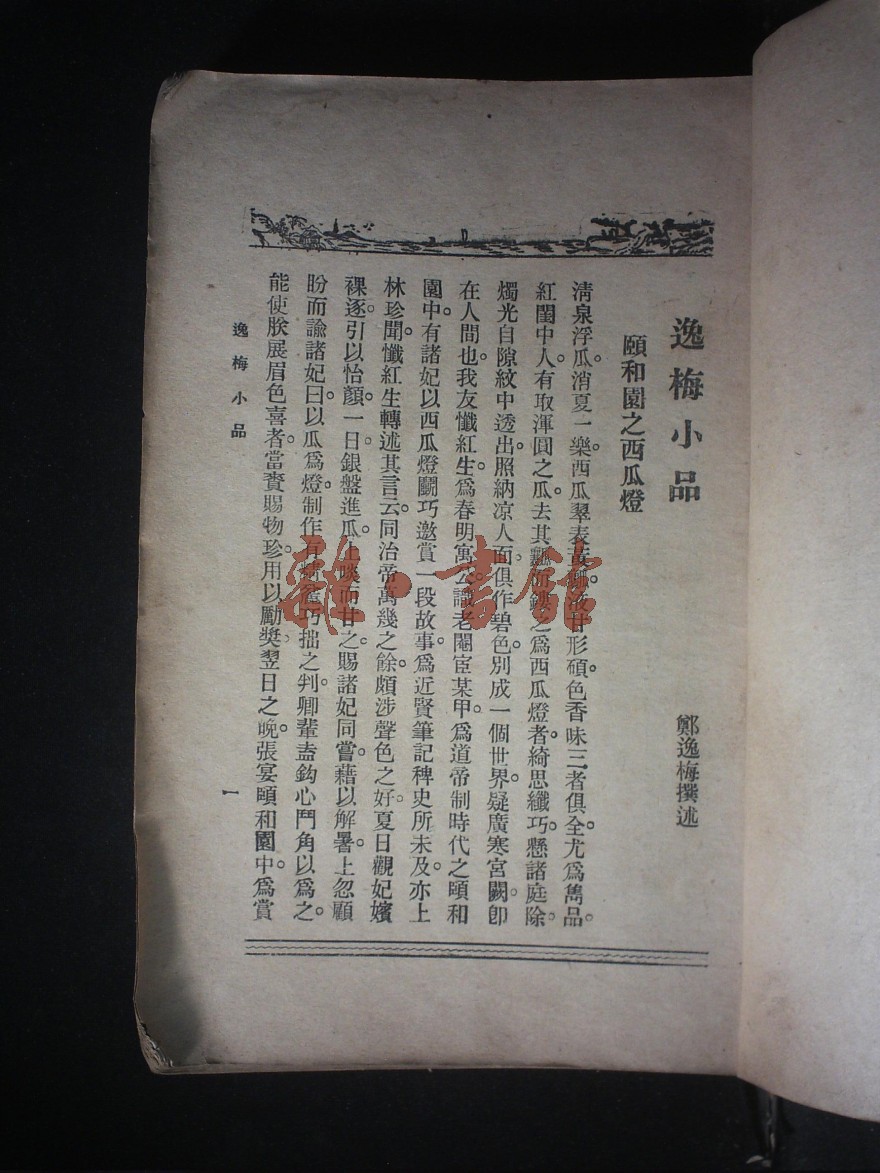 逸梅小品
鄭逸梅撰述
頤和園之西瓜燈
清泉浮瓜。消夏一樂。西瓜翠表黃瓤。液甘形碩。色香味三者俱全。尤爲雋品。
紅閨中人。有取渾圓之瓜。去其瓤而鏤之爲西瓜燈者。綺思纖巧。懸諸庭除。
燭光自隙紋中透出。照納凉人面。俱作碧色。別成一個世界。疑廣寒宮闕。卽
在人間也。我友懺紅生。爲春明寓公。識老閹臣某甲。爲道帝制時代之頤和
園中。有諸妃以西瓜燈鬭巧邀賞一段故事。爲近賢筆記稗史所未及。亦上
林珍聞。懺紅生轉述其言云。同治帝萬幾之餘。頗涉聲色之好。夏日觀妃嬪
裸逐。引以怡顏。一日銀盤進瓜。上啖而甘之。賜諸妃同嘗。藉以解暑。上忽顧
盼而諭諸妃曰。以瓜爲燈。制作有精粗巧拙之判。卿輩盍鈎心鬥角以爲之。
能使朕展眉色喜者。當賚賜物珍用以勵獎。翌日之晚。張宴頤和園中。爲賞
逸梅小品
一
雜·書館